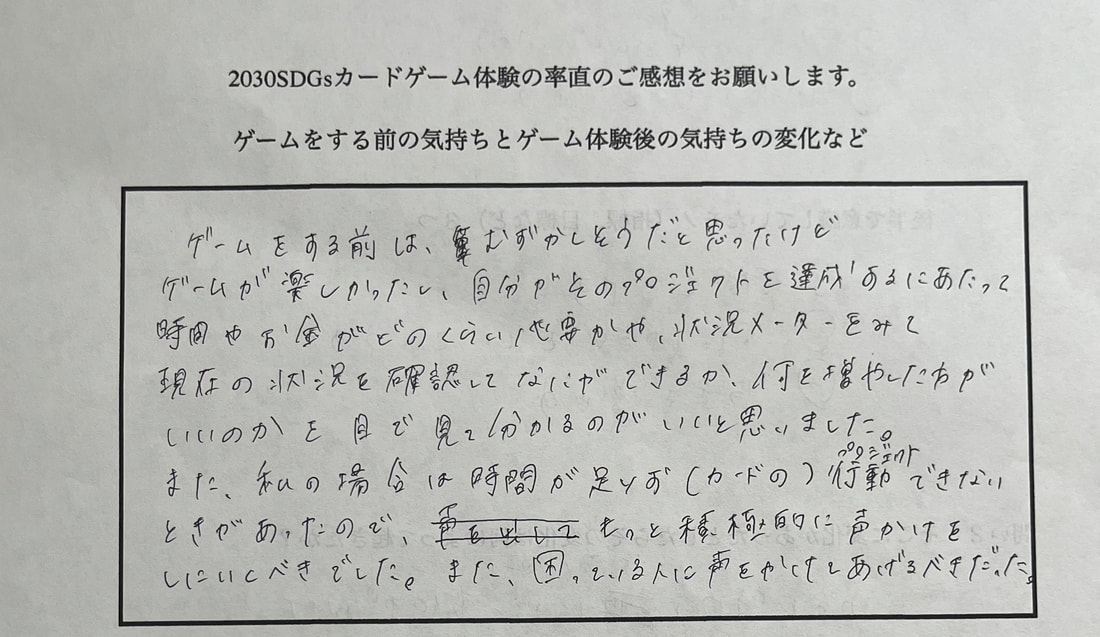 2030SDGsカードゲーム体験の率直のご感想をお願いします。
ゲームをする前の気持ちとゲーム体験後の気持ちの変化など
ゲームをする前は、むずかしそうだと思ったけど
ゲームが楽しかったし、自分がそのプロジェクトを達成するにあたって
時間やお金がどのくらい必要かや、状況メーターをみて
現在の状況を確認してなにができるか、何を増やした方が
いいのかを目で見て分かるのがいいと思いました。
プロジェクト
また、私の場合は時間が足りず(カードの)行動できない
ときがあったので、声を出して もっと積極的に声かけを
しにいくべきでした。また、困っている人に声をかけてあげるべきだった。